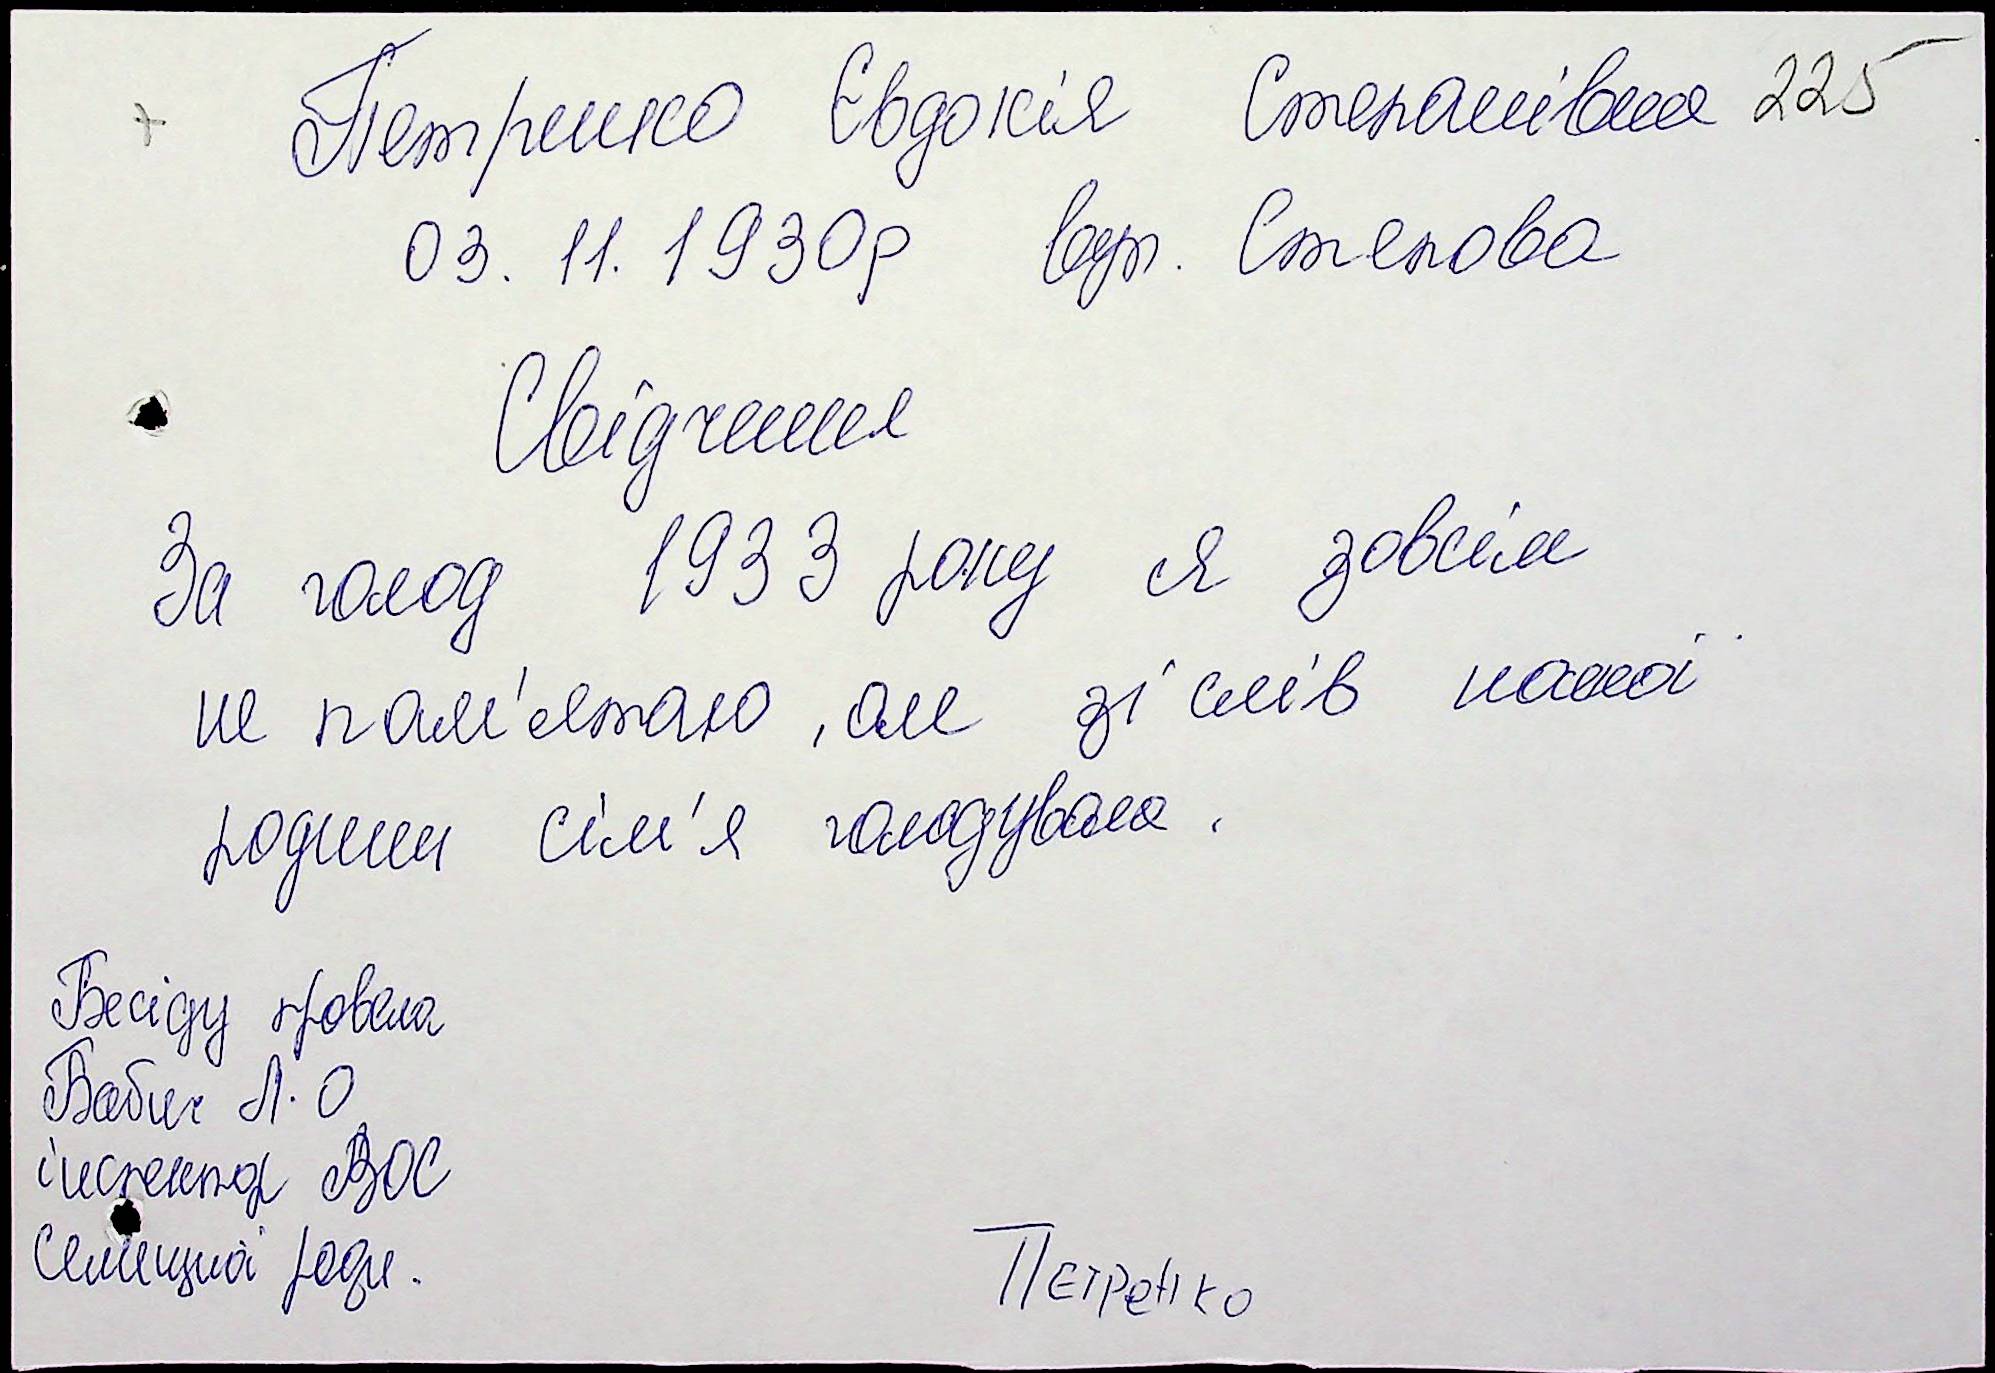 + Петренко Євдокія Степанівна 225
03. 11. 1930р вул. Степова
Свідчення
За голод 1933 року я зовсім
не пам'ятаю, але зі слів нашої
родини сім'я голодувала.
Бесіду провела
Бабич Л. О
інспектор ВОС
Селищної ради.
Петренко